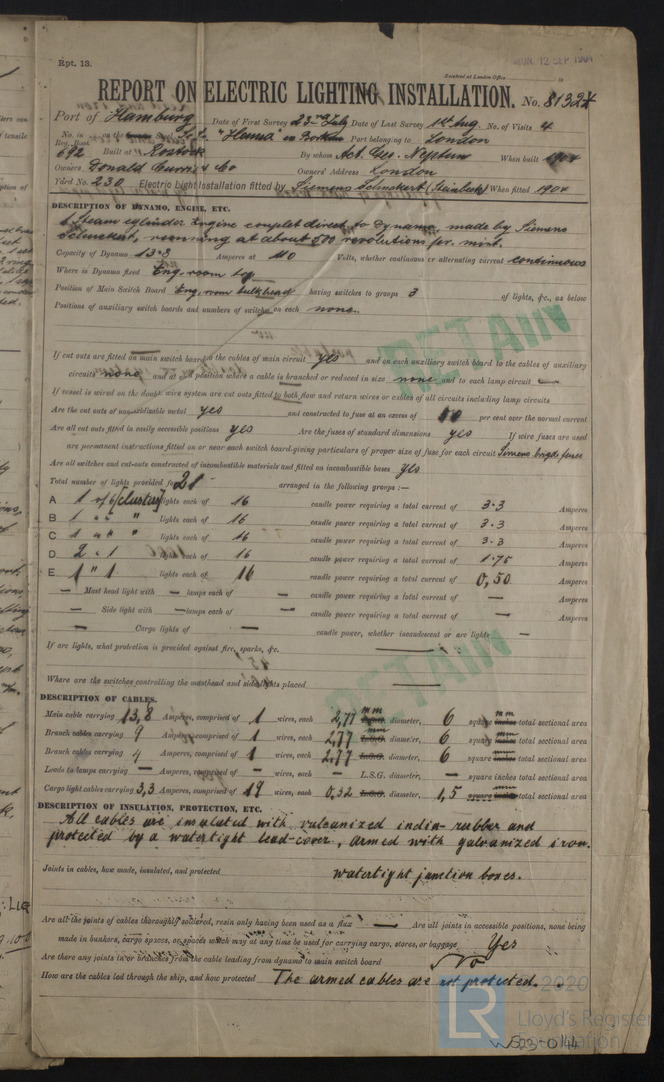 Rpt. 13.
Received at London Office
MON. 12 SEP 1904
REPORT ON ELECTRIC LIGHTING INSTALLATION. No. 81324
Port of Hamburg Date of First Survey 23rd July Date of Last Survey 1st Aug. No. of Visits 4
No. in Reg. Book on the Port belonging to London
692 Built at Rostock By whom Act. Ges. Neptun When built 1904
Owners Donald Currie & Co Owners' Address London
Yard No. 230 Electric Light Installation fitted by Siemens Schuckert When fitted 1904
DESCRIPTION OF DYNAMO, ENGINE, ETC.
1 Steam cylinder Engine couplet direct to Dynamo, made by Siemens
Schuckert, running at about 500 revolutions per. mint.
Capacity of Dynamo 13.8 Amperes at 110 Volts, whether continuous or alternating current continuous
Where is Dynamo fixed Eng. room top
Position of Main Switch Board Eng. room bulkhead having switches to groups 3 of lights, &c., as below
Positions of auxiliary switch boards and numbers of switches on each none.
RETAIN
If cut outs are fitted on main switch board on the cables of main circuit yes and on each auxiliary switch board to the cables of auxiliary
circuits none and at each position where a cable is branched or reduced in size none and to each lamp circuit —
If vessel is wired on the double wire system are cut outs fitted to both flow and return wires or cables of all circuits including lamp circuits
Are the cut outs of non-oxidizable metal yes and constructed to fuse at an excess of 50 per cent over the normal current
Are all cut outs fitted in easily accessible positions yes Are the fuses of standard dimensions yes If wire fuses are used
are permanent instructions fitted on or near each switch board giving particulars of proper size of fuse for each circuit Siemens fuses
Are all switches and cut-outs constructed of incombustible materials and fitted on incombustible bases yes
Total number of lights provided for 21 arranged in the following groups :—
A 1 of 6 (cluster) lights each of 16 candle power requiring a total current of 3.3 Amperes
B 1 " " " lights each of 16 candle power requiring a total current of 3.3 Amperes
C 1 " " " lights each of 16 candle power requiring a total current of 3.3 Amperes
D 2 " 1 lights each of 16 candle power requiring a total current of 1.75 Amperes
E 1 " 1 lights each of 16 candle power requiring a total current of 0,50 Amperes
— Mast head light with — lamps each of — candle power requiring a total current of — Amperes
— Side light with — lamps each of — candle power requiring a total current of — Amperes
— Cargo lights of — candle power, whether incandescent or arc lights —
If arc lights, what protection is provided against fire, sparks, &c. —
RETAIN
Where are the switches controlling the masthead and side lights placed —
DESCRIPTION OF CABLES.
Main cable carrying 13,8 Amperes, comprised of 1 wires, each 2,77 mm L.S.G. diameter, 6 square mm inches total sectional area
Branch cables carrying 9 Amperes, comprised of 1 wires, each 2,77 mm L.S.G. diameter, 6 square mm inches total sectional area
Branch cables carrying 4 Amperes, comprised of 1 wires, each 2,77 L.S.G. diameter, 6 square mm inches total sectional area
Leads to lamps carrying — Amperes, comprised of — wires, each — L.S.G. diameter, — square inches total sectional area
Cargo light cables carrying 3,3 Amperes, comprised of 19 wires, each 0,32 L.S.G. diameter, 1,5 square mm inches total sectional area
DESCRIPTION OF INSULATION, PROTECTION, ETC.
All cables are insulated with vulcanized india-rubber and
protected by a watertight lead-cover, armed with galvanized iron.
Joints in cables, how made, insulated, and protected watertight junction boxes.
Are all the joints of cables thoroughly soldered, resin only having been used as a flux — Are all joints in accessible positions, none being
made in bunkers, cargo spaces, or spaces which may at any time be used for carrying cargo, stores, or baggage Yes
Are there any joints in or branches from the cable leading from dynamo to main switch board No
How are the cables led through the ship, and how protected The armed cables are not protected.
© 2020
LR
Lloyd's Register
Foundation
W523-0144